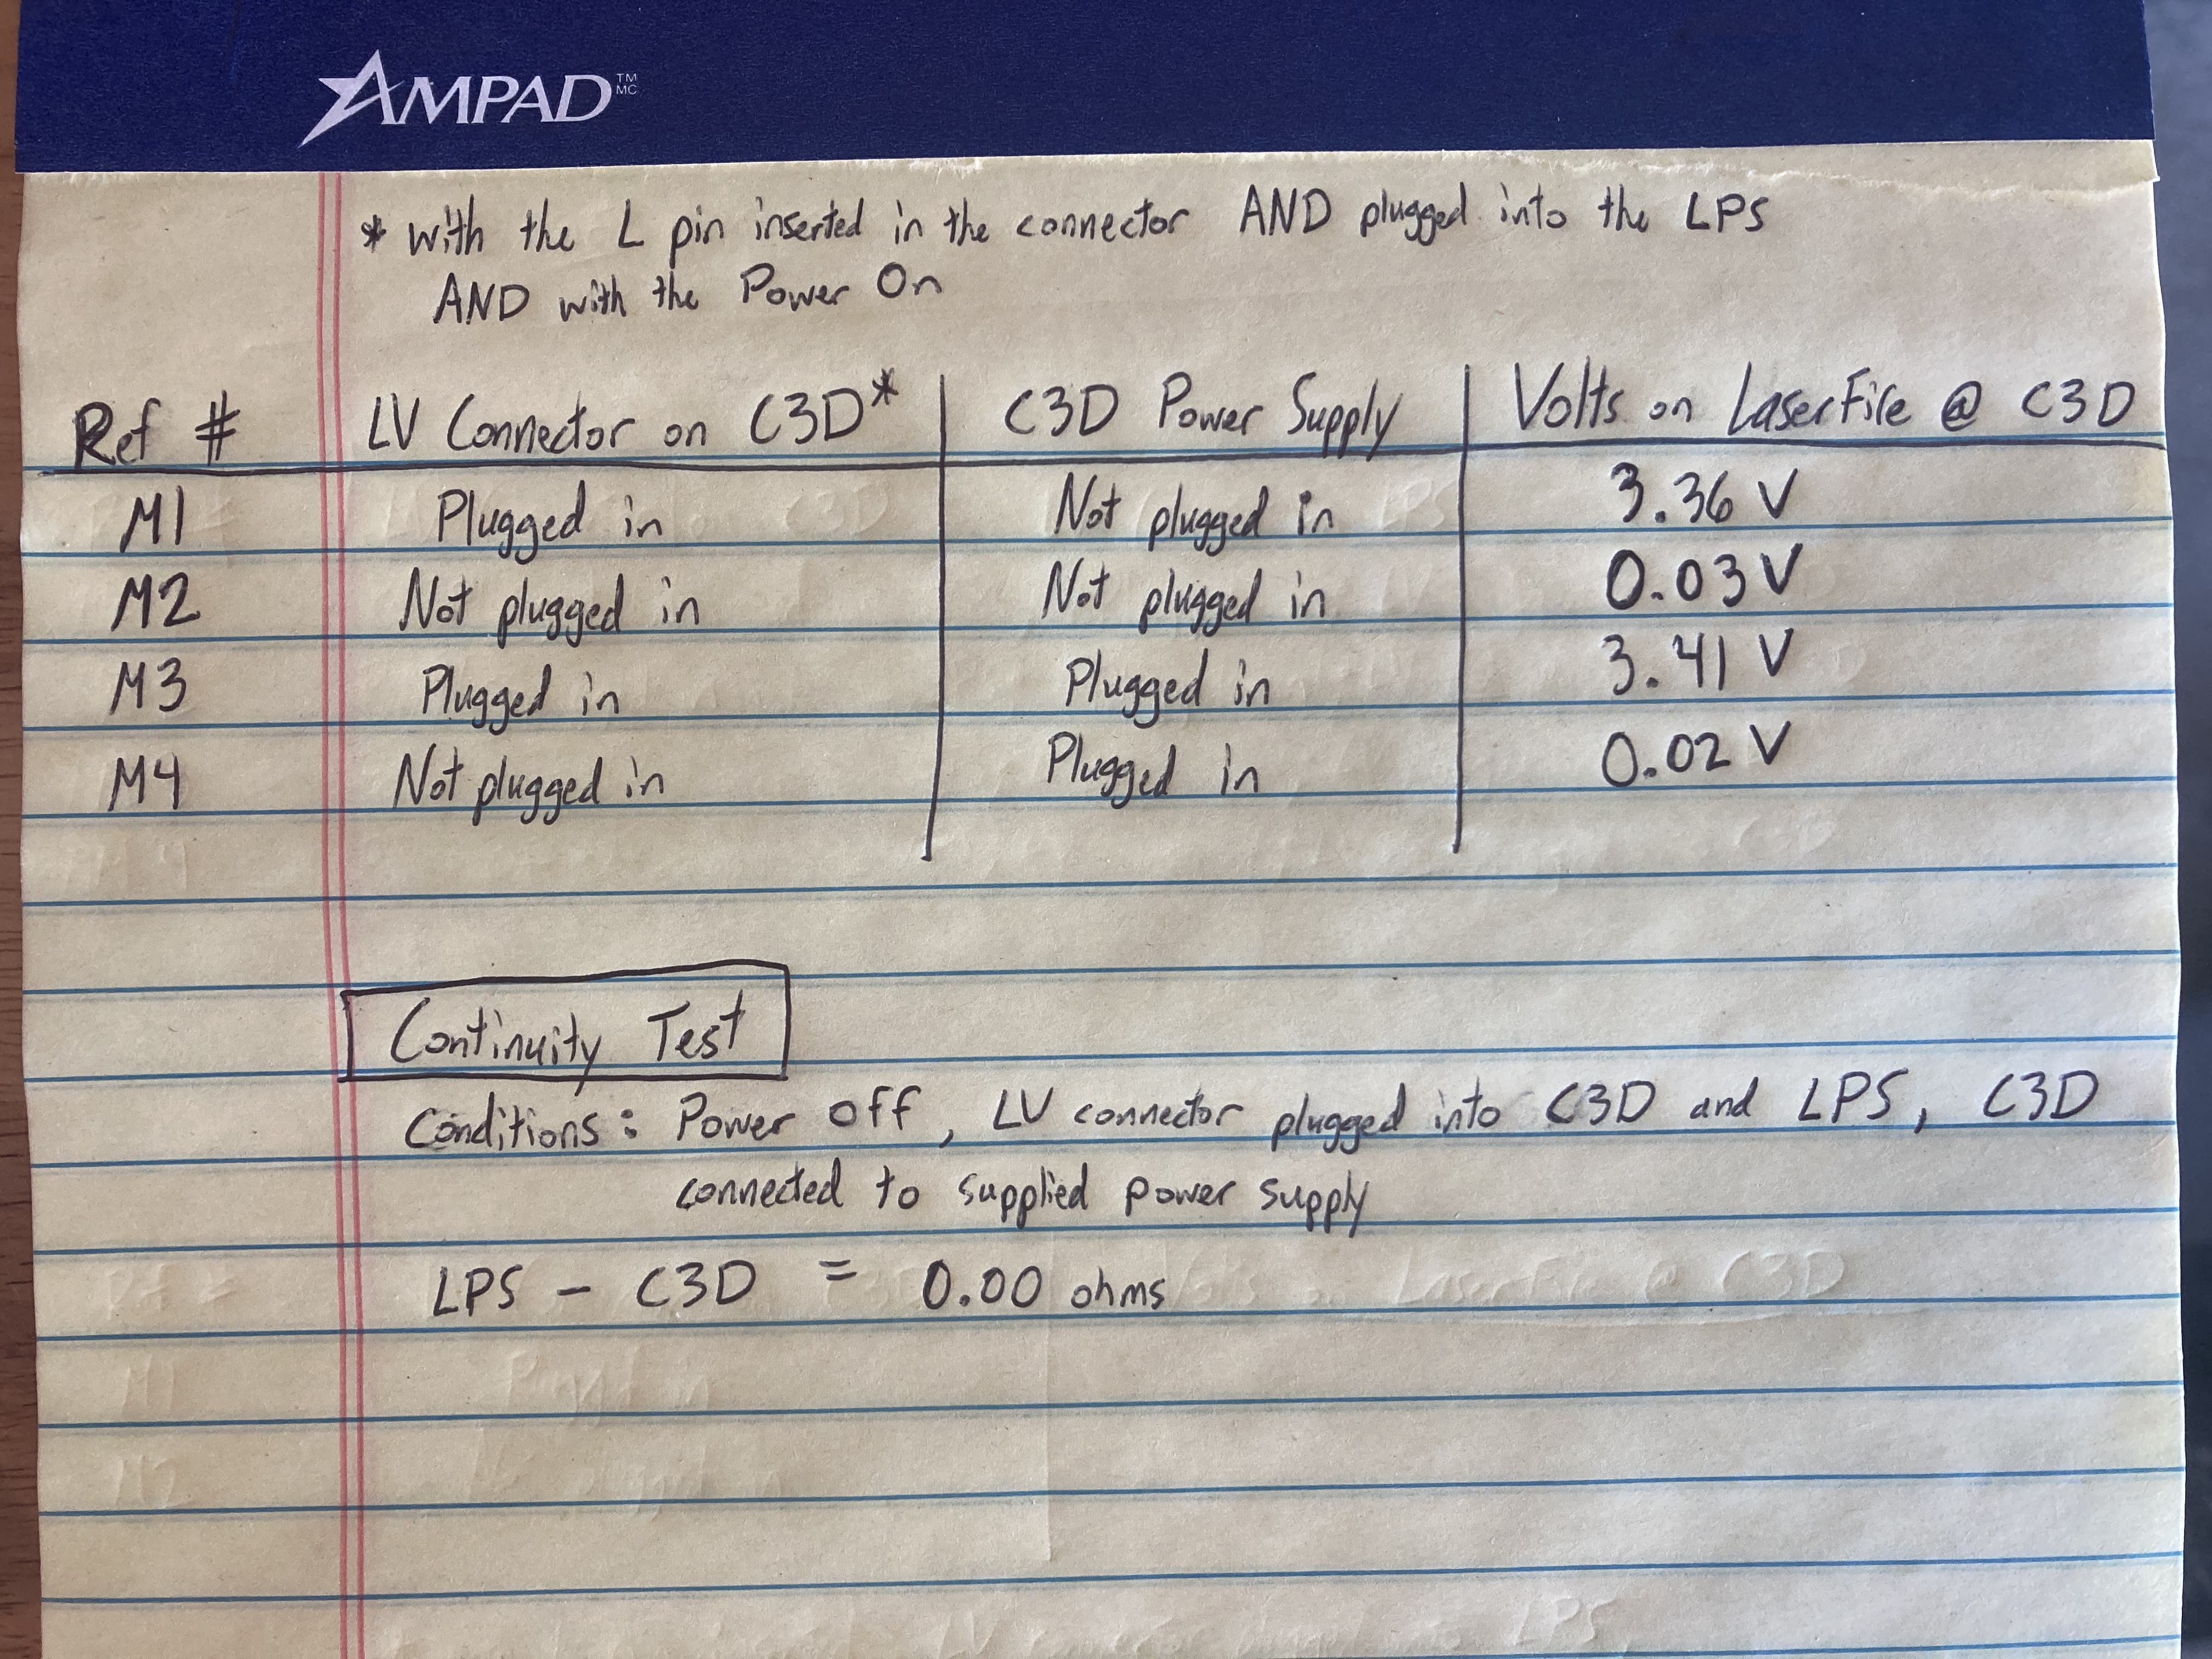 AMPAD TM MC
* with the L pin inserted in the connector AND plugged into the LPS
AND with the Power On
Ref # LV Connector on C3D* C3D Power Supply Volts on LaserFire @ C3D
M1 Plugged in Not plugged in 3.36 V
M2 Not plugged in Not plugged in 0.03 V
M3 Plugged in Plugged in 3.41 V
M4 Not plugged in Plugged in 0.02 V
Continuity Test
Conditions: Power off, LV connector plugged into C3D and LPS, C3D
connected to supplied power supply
LPS - C3D = 0.00 ohms